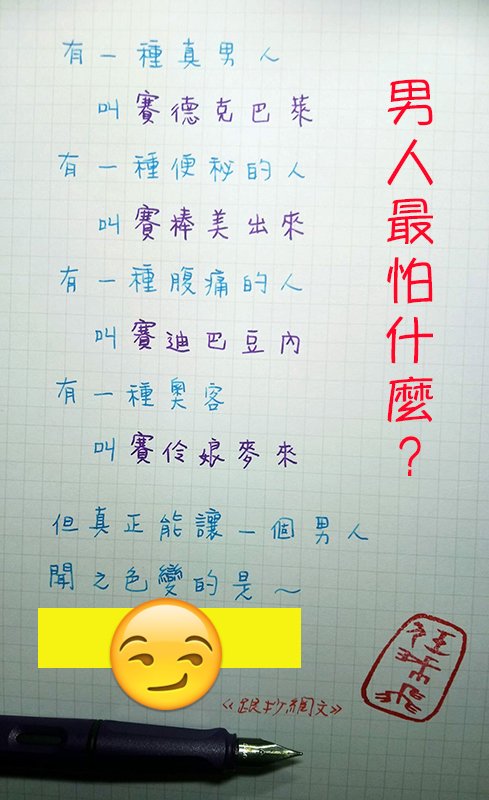 有一種真男人
叫賽德克巴萊
有一種便秘的人
叫賽棒美出來
有一種腹痛的人
叫賽迪巴豆內
有一種奧客
叫賽伶娘麥來
但真正能讓一個男人
聞之色變的是～
男人最怕什麼？
《跟抄網文》